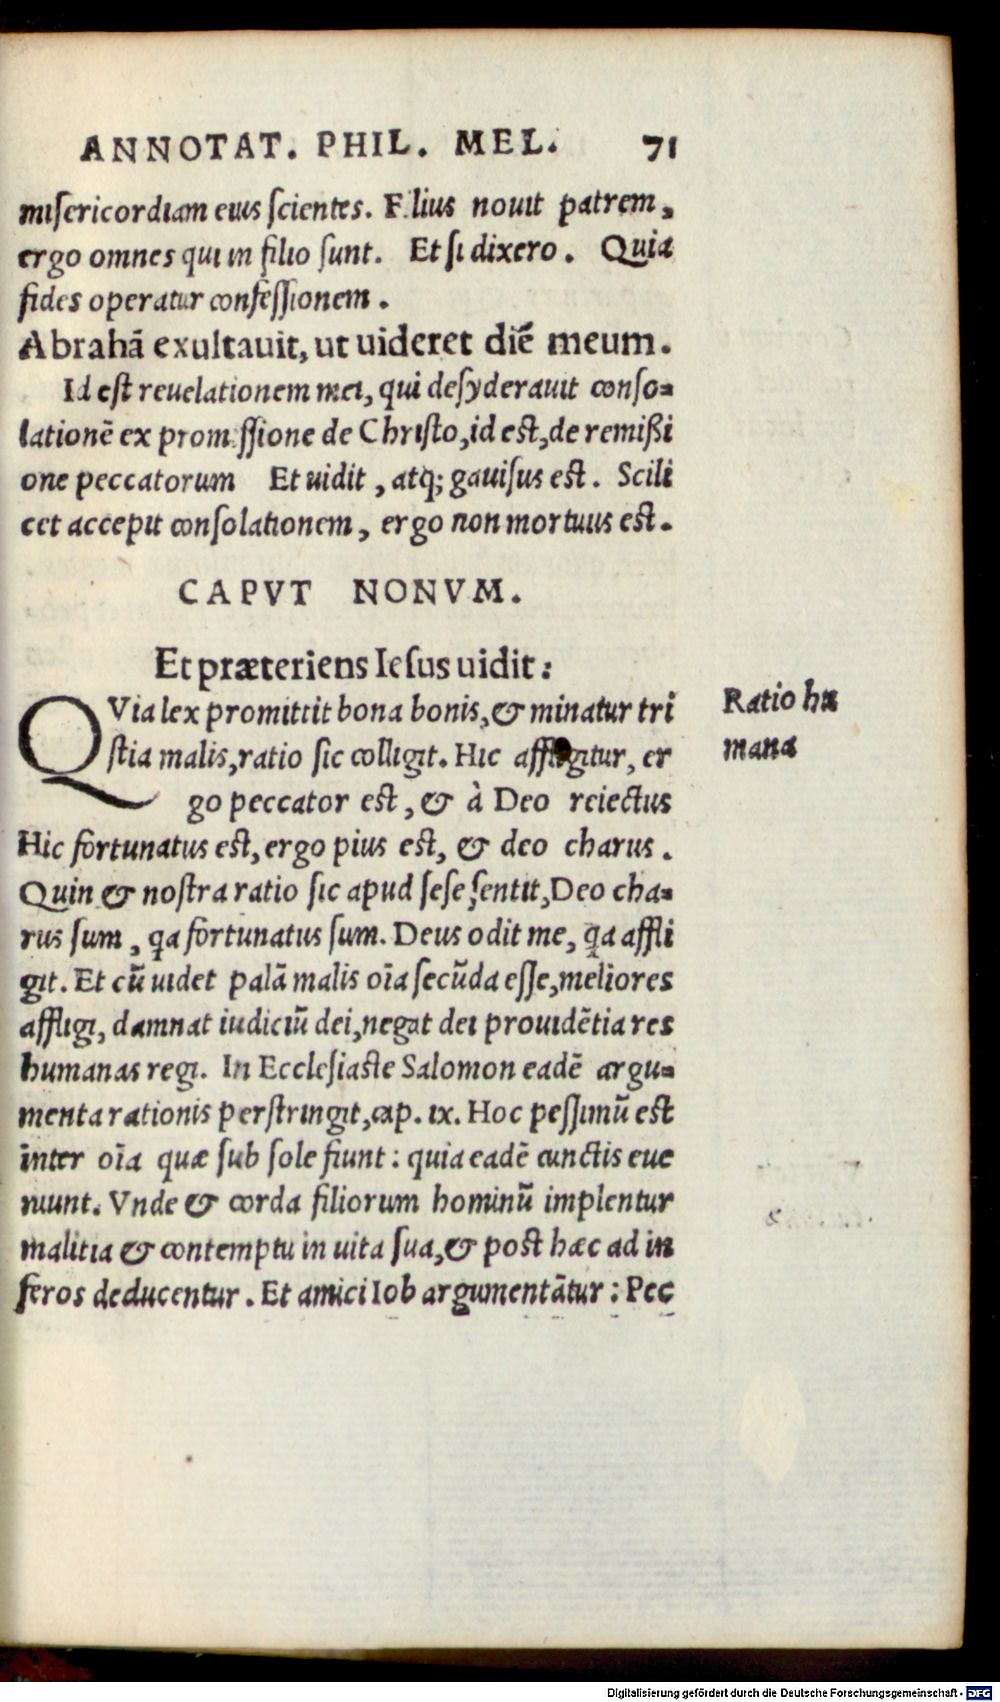 ANNOTAT. PHIL. MEL. 71
miſericordiam eius ſcientes. Filius nouit patrem,
ergo omnes qui in filio ſunt. Et ſi dixero. Quia
fides operatur confeſſionem.
Abrahã exultauit, ut uideret diẽ meum.
Id eſt reuelationem mei, qui deſyderauit conſo-
lationẽ ex promiſſione de Chriſto, id eſt, de remißi
one peccatorum Et uidit, atq; gauiſus eſt. Scili
cet accepit conſolationem, ergo non mortuus eſt.
CAPVT NONVM.
Et præteriens Ieſus uidit:
QVia lex promittit bona bonis, & minatur tri
ſtia malis, ratio ſic colligit. Hic affligitur, er
go peccator eſt, & à Deo reiectus
Hic fortunatus eſt, ergo pius eſt, & deo charus.
Quin & noſtra ratio ſic apud ſeſe ſentit, Deo cha-
rus ſum, q̃a fortunatus ſum. Deus odit me, q̃a affli
git. Et cũ uidet palã malis oĩa ſecũda eſſe, meliores
affligi, damnat iudiciũ dei, negat dei prouidẽtia res
humanas regi. In Eccleſiaſte Salomon eadẽ argu-
menta rationis perſtringit, cap. ix. Hoc peſſimũ eſt
inter oĩa quæ ſub ſole fiunt: quia eadẽ cunctis eue
niunt. Vnde & corda filiorum hominũ implentur
malitia & contemptu in uita ſua, & poſt hæc ad in
feros deducentur. Et amici Iob argumentãtur: Pec
Ratio hu
mana
Digitalisierung gefördert durch die Deutsche Forschungsgemeinschaft - DFG